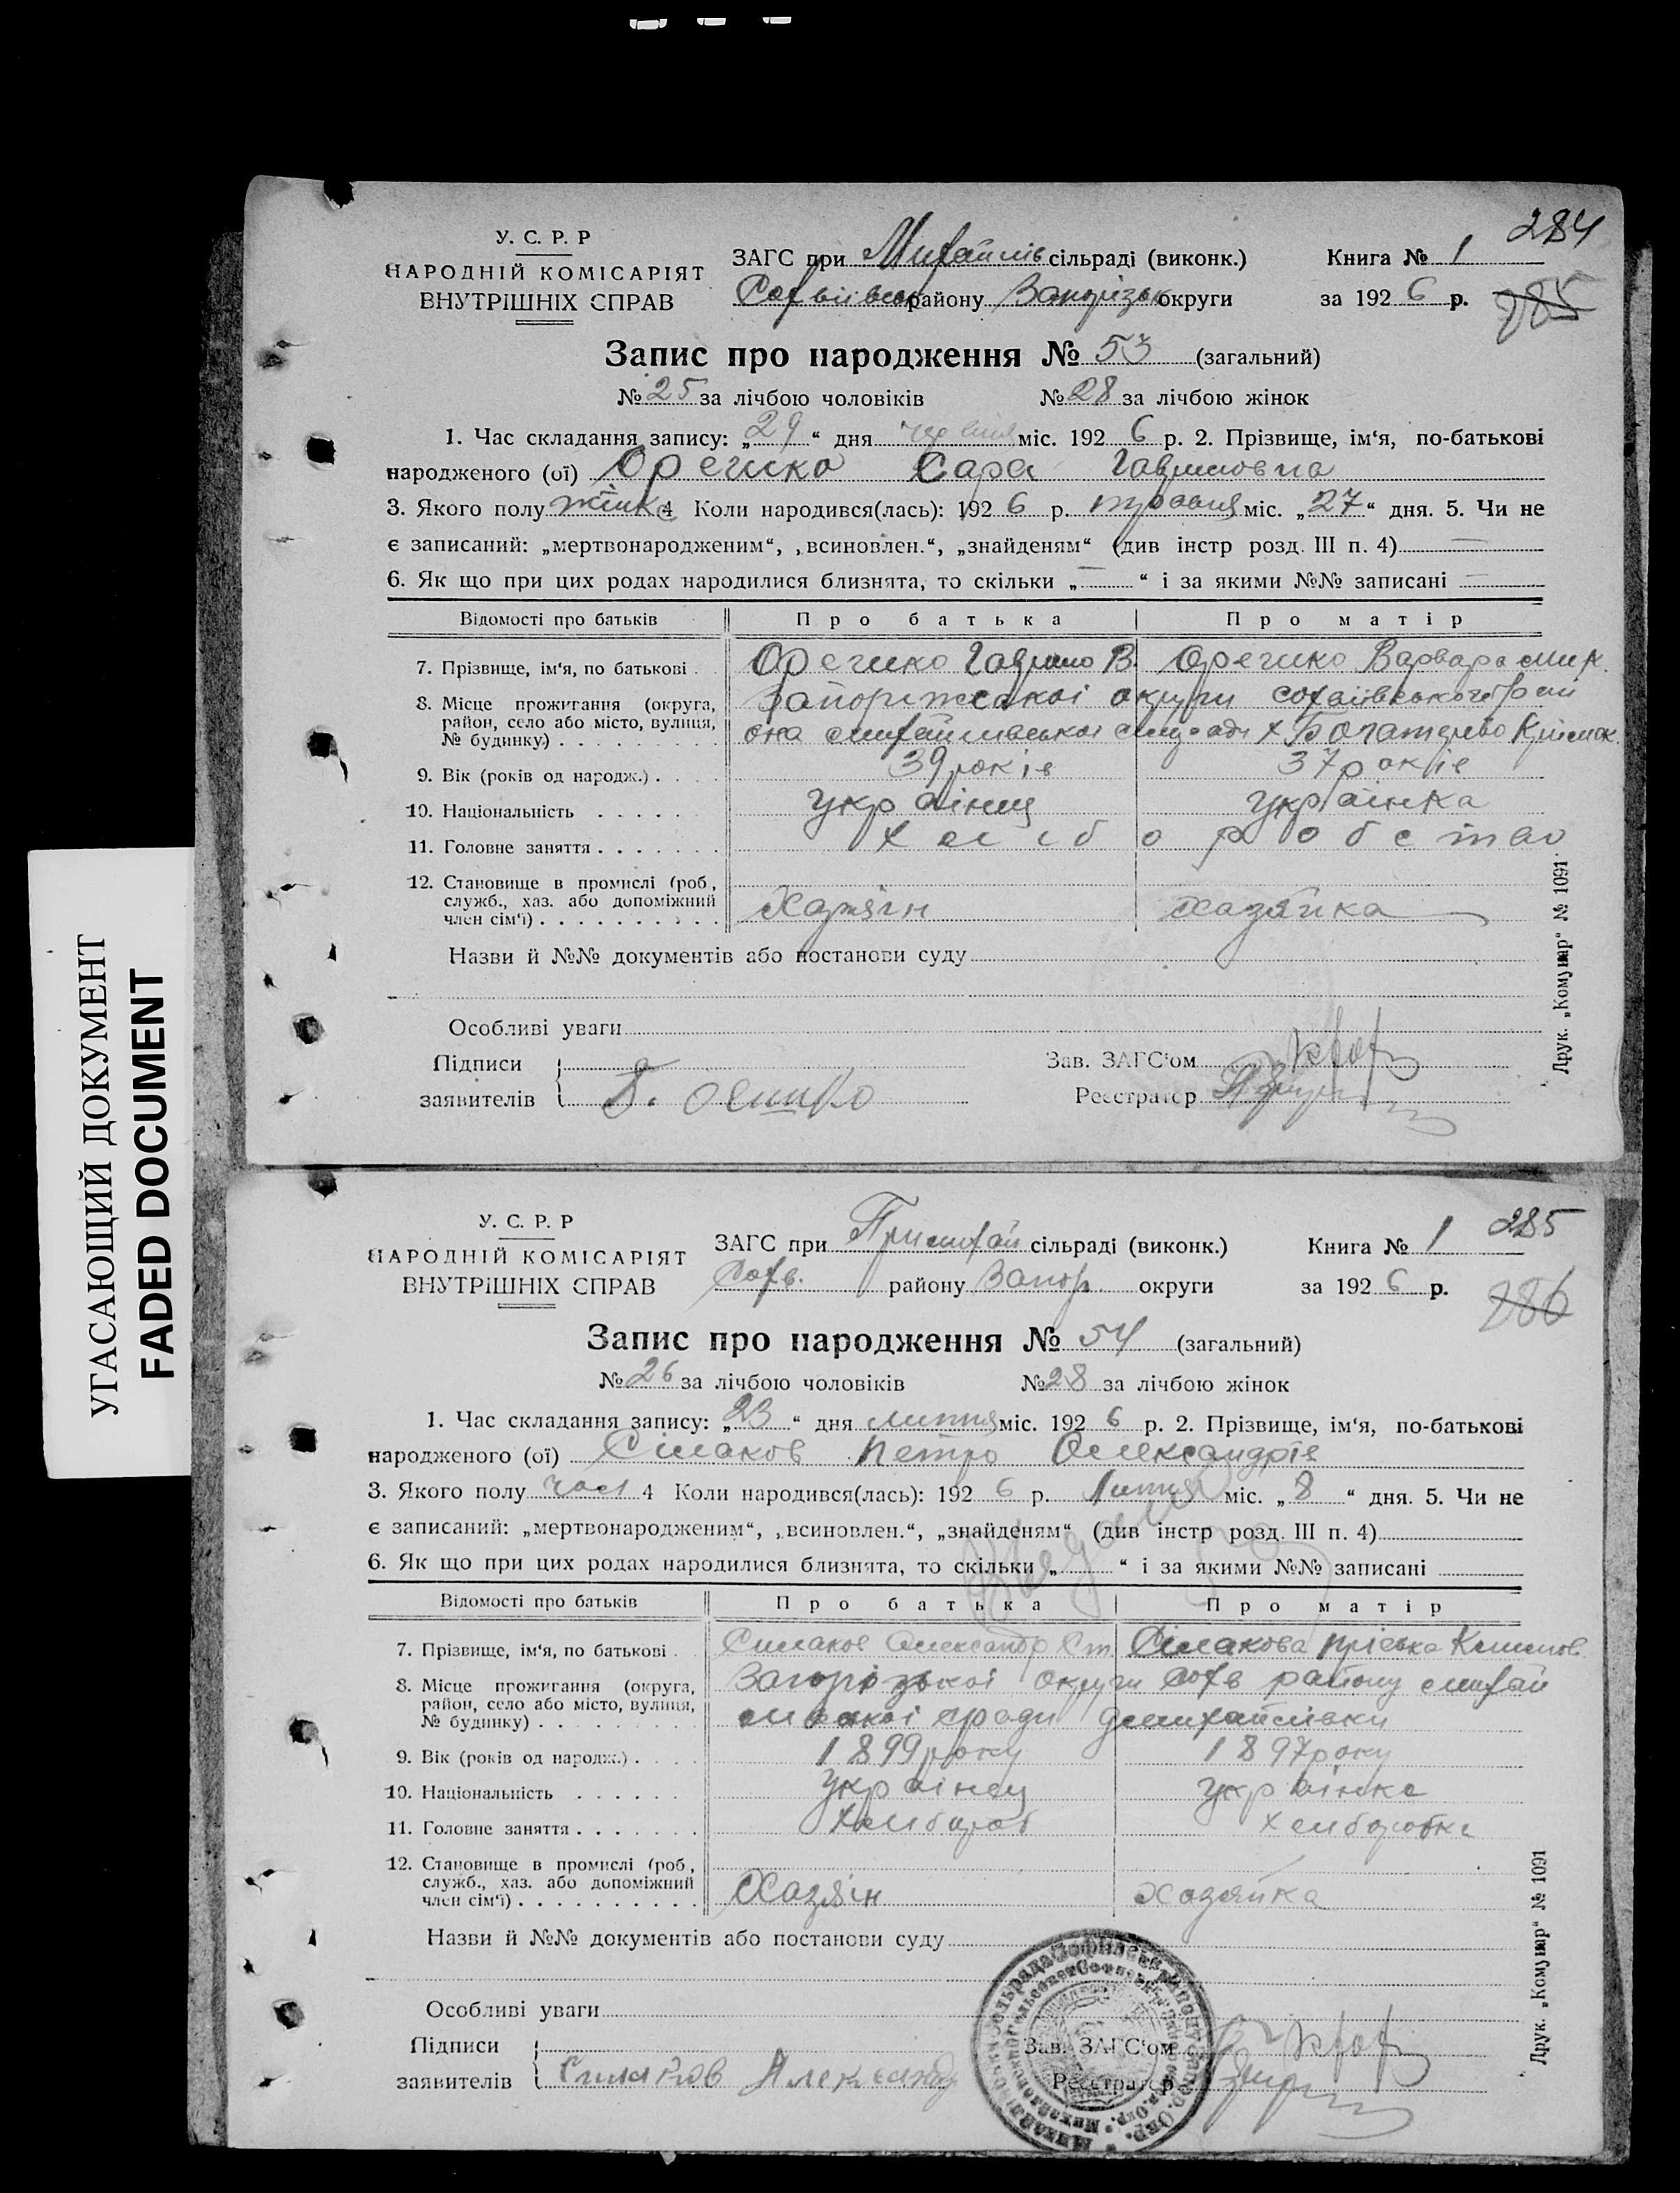 284
У. С. Р. Р
НАРОДНІЙ КОМІСАРІЯТ
ВНУТРІШНІХ СПРАВ
ЗАГС при Михайлів сільраді (виконк.) Книга № 1
Софіївськ району Запорізьк округи за 1926 р. 285
Запис про народження № 53 (загальний)
№ 25 за лічбою чоловіків № 28 за лічбою жінок
1. Час складання запису: „29“ дня червня міс. 1926 р. 2. Прізвище, ім‘я, по-батькові
народженого (ої) Оречко Сара Гавриловна
3. Якого полу жінк 4 Коли народився(лась): 1926 р. травня міс. „27“ дня. 5. Чи не
є записаний: „мертвонародженим“, „всиновлен.“, „знайденям“ (див інстр розд. III п. 4) —
6. Як що при цих родах народилися близнята, то скільки „—“ і за якими №№ записані —
Відомості про батьків Про батька Про матір
7. Прізвище, ім‘я, по батькові . Оречко Гаврило В. Оречко Варвара Мик.
8. Місце прожигания (округа, район, село або місто, вулиця, № будинку) Запоріжської округи Софіївського рай
она Михайлівської сільради х
9. Вік (років од народж.) . . . . 39 років 37 років
10. Національність . . . . . . українец українка
11. Головне заняття . . . . . . . хліборобство
12. Становище в промислі (роб., служб., хаз. або допоміжний член сім‘ї) . . . . . . . . . . Хазяїн хазяйка
Назви й №№ документів або постанови суду
Особливі уваги
Підписи Зав. ЗАГС‘ом
заявителів Реєстратор
Друк. „Комунар“ № 1091
УГАСАЮЩИЙ ДОКУМЕНТ
FADED DOCUMENT
285
У. С. Р. Р
НАРОДНІЙ КОМІСАРІЯТ
ВНУТРІШНІХ СПРАВ
ЗАГС при Михай сільраді (виконк.) Книга № 1
Софв. району Запор. округи за 1926 р. 286
Запис про народження № 54 (загальний)
№ 26 за лічбою чоловіків № 28 за лічбою жінок
1. Час складання запису: „23“ дня липня міс. 1926 р. 2. Прізвище, ім‘я, по-батькові
народженого (ої) Сімаков Петро Олександрів
3. Якого полу чол 4 Коли народився(лась): 1926 р. Липня міс. „8“ дня. 5. Чи не
є записаний: „мертвонародженим“, „всиновлен.“, „знайденям“ (див інстр розд. III п. 4)
6. Як що при цих родах народилися близнята, то скільки „ “ і за якими №№ записані
Відомості про батьків Про батька Про матір
7. Прізвище, ім‘я, по батькові . Симаков Олександр Ст Сімакова Пріська
8. Місце прожигания (округа, район, село або місто, вулиця, № будинку) . Запорізької округи Софв району Михай
лівської с ради
9. Вік (років од народж.) . . . . 1899 року 1897 року
10. Національність . . . . . . українец українка
11. Головне заняття . . . . . . . хлібороб хліборобка
12. Становище в промислі (роб., служб., хаз. або допоміжний член сім‘ї) . . . . . . . . . . Хазяїн хазяйка
Назви й №№ документів або постанови суду
Особливі уваги
Підписи Зав. ЗАГС‘ом
заявителів Симаков Александ Реєстратор
Друк. „Комунар“ № 1091